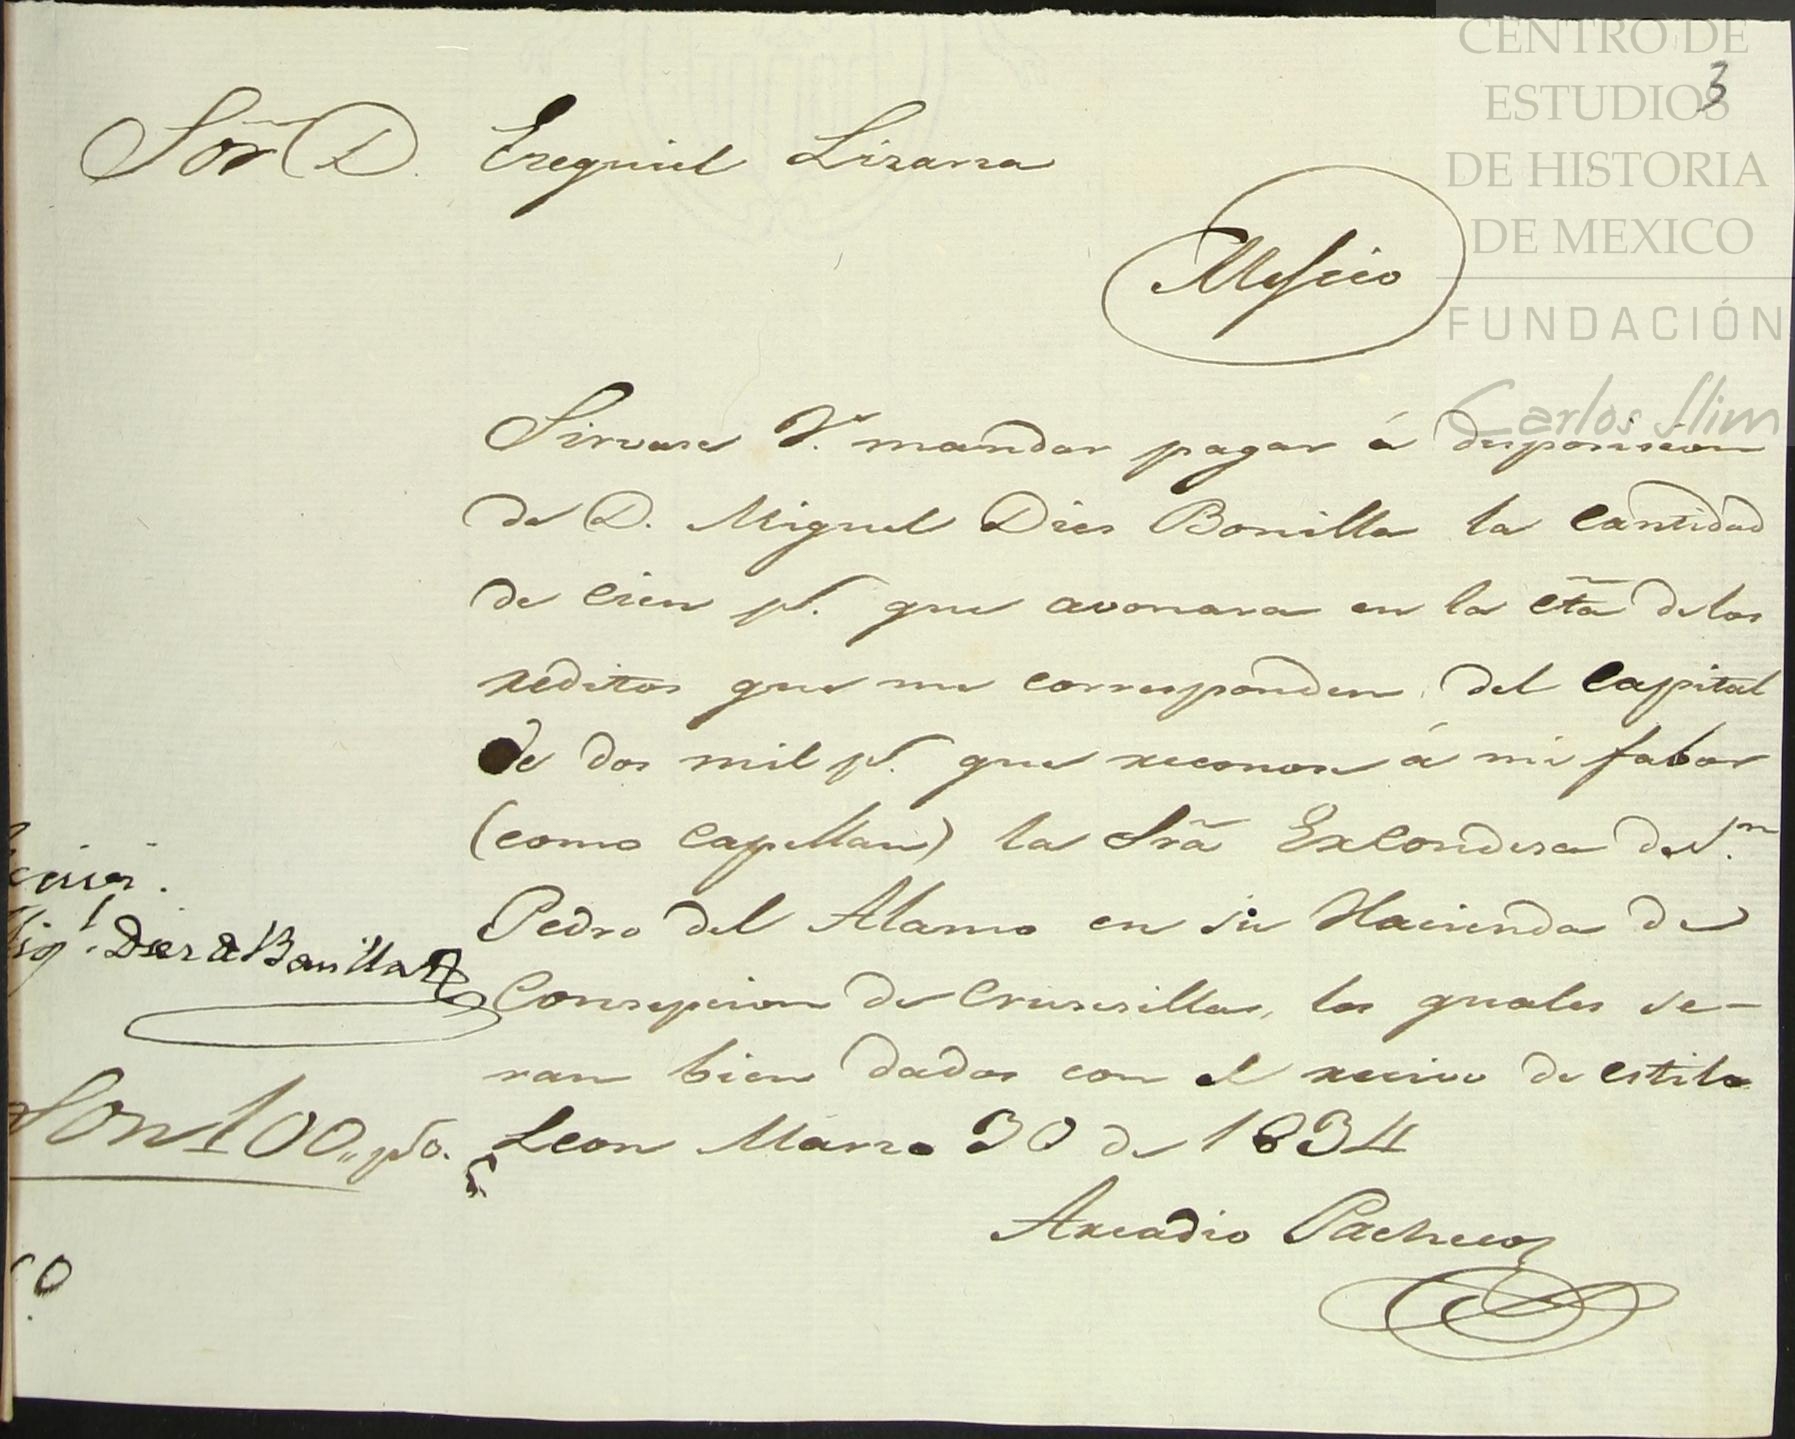 3
Sor. D. Ezequiel Lizarza
Mejico
Sirvase V. mandar pagar á disposision
de D. Miguel Dies Bonilla la cantidad
de cien ps. que avonara en la cta de los
reditos que me corresponden del Capital
de dos mil ps. que reconose á mi fabor
(como Capellan) la Sra ExCondesa de S.n
Pedro del Alamo en su Hacienda de
Consepcion de Crusesillas, los quales se-
ran bien dados con el recivo de estilo
Leon Marzo 30 de 1834
Arcadio Pacheco
Migl. Diez de Bonilla
Son 100,, pso.
CENTRO DE
ESTUDIOS
DE HISTORIA
DE MEXICO
FUNDACIÓN
Carlos Slim